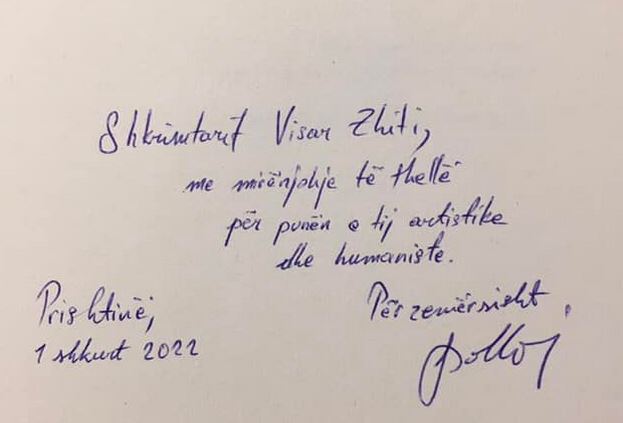 Shkrimtarit Visar Zhiti,
me mirënjohje të thellë
për punën e tij artistike
dhe humaniste.
Prishtinë,
1 shkurt 2022
Përzemërsisht,